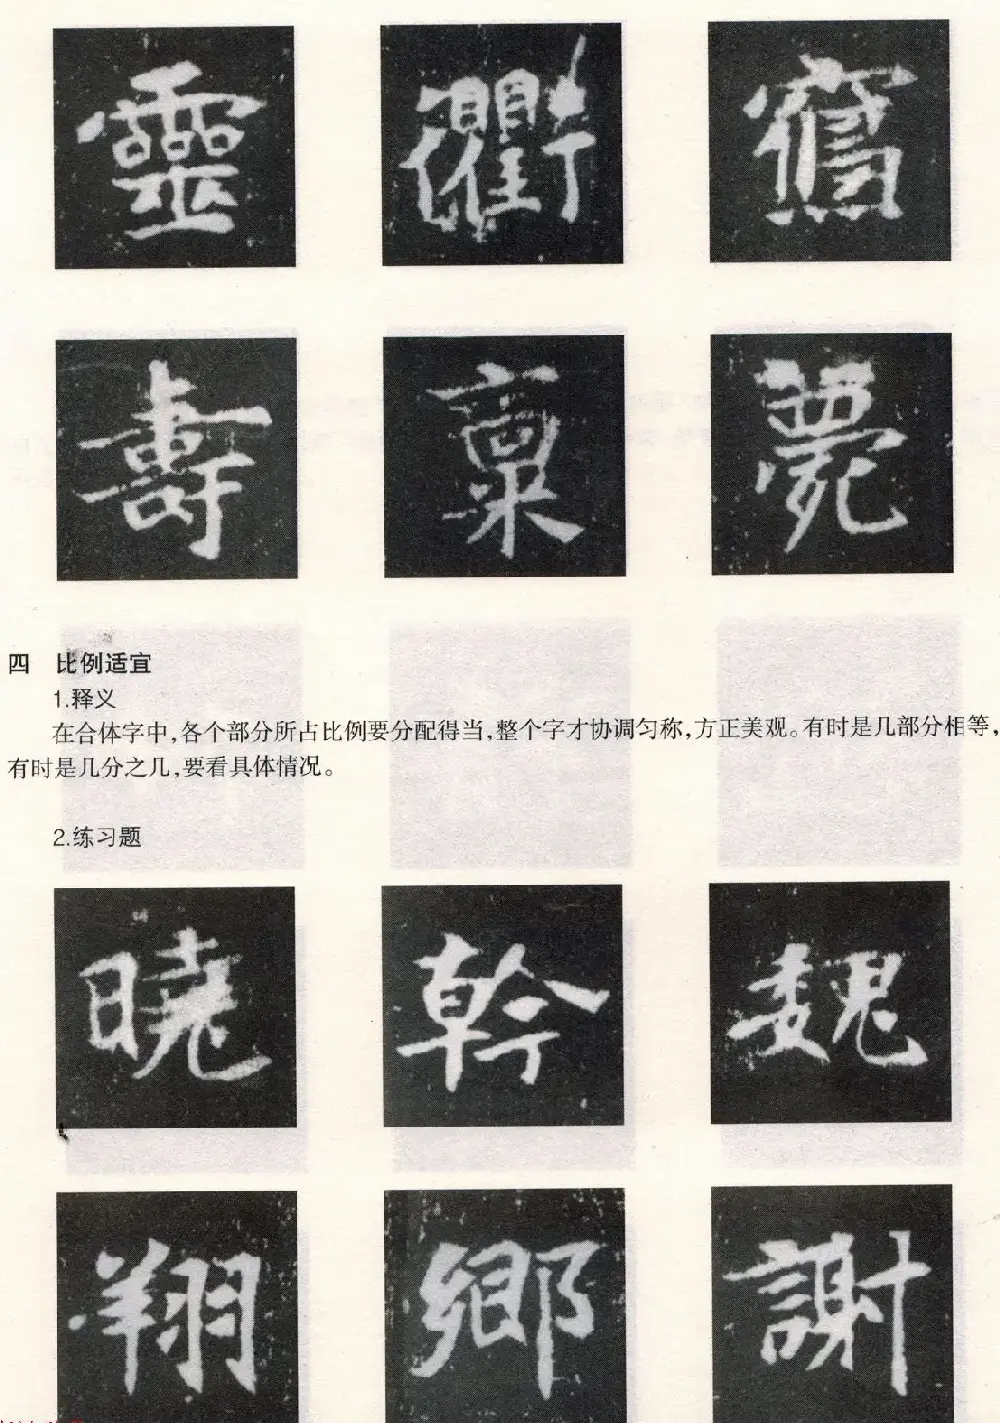 靈 衢 寫
壽 稟 薨
四 比例适宜
1.释义
在合体字中,各个部分所占比例要分配得当,整个字才协调匀称,方正美观。有时是几部分相等,
有时是几分之几,要看具体情况。
2.练习题
曉 幹 魏
翔 鄉 謝